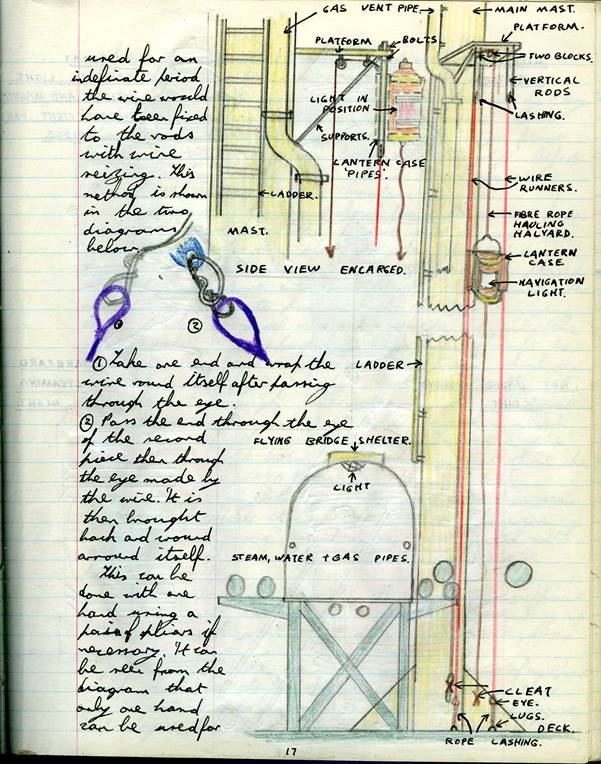 used for an
indefinate period
the wire would
have been fixed
to the rods
with wire
seizing. This
method is shown
in the two
diagrams
below.
① ②
① Take one end and wrap the
wire round itself after passing
through the eye.
② Pass the end through the eye
of the second
piece then through
the eye made by
the wire. It is
then brought
back and wound
arround itself.
This can be
done with one
hand using a
pair of pliars if
necessary. It can
be seen from the
diagram that
only one hand
can be used for
GAS VENT PIPE.
PLATFORM
BOLTS.
LIGHT IN
POSITION
SUPPORTS.
LANTERN CASE
'PIPES'.
LADDER.
MAST.
SIDE VIEW ENLARGED.
MAIN MAST.
PLATFORM.
TWO BLOCKS.
VERTICAL
RODS
LASHING.
WIRE
RUNNERS.
FIBRE ROPE
HAULING
HALYARD.
LANTERN
CASE.
NAVIGATION
LIGHT.
LADDER
FLYING BRIDGE SHELTER.
LIGHT
STEAM, WATER + GAS PIPES.
CLEAT
EYE.
LUGS.
DECK.
ROPE LASHING.
17